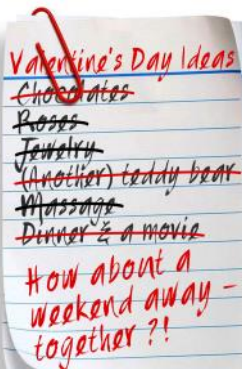 Valentine's Day Ideas
Chocolates
Roses
Jewelry
(Another) teddy bear
Massage
Dinner & a movie
How about a
weekend away -
together?!